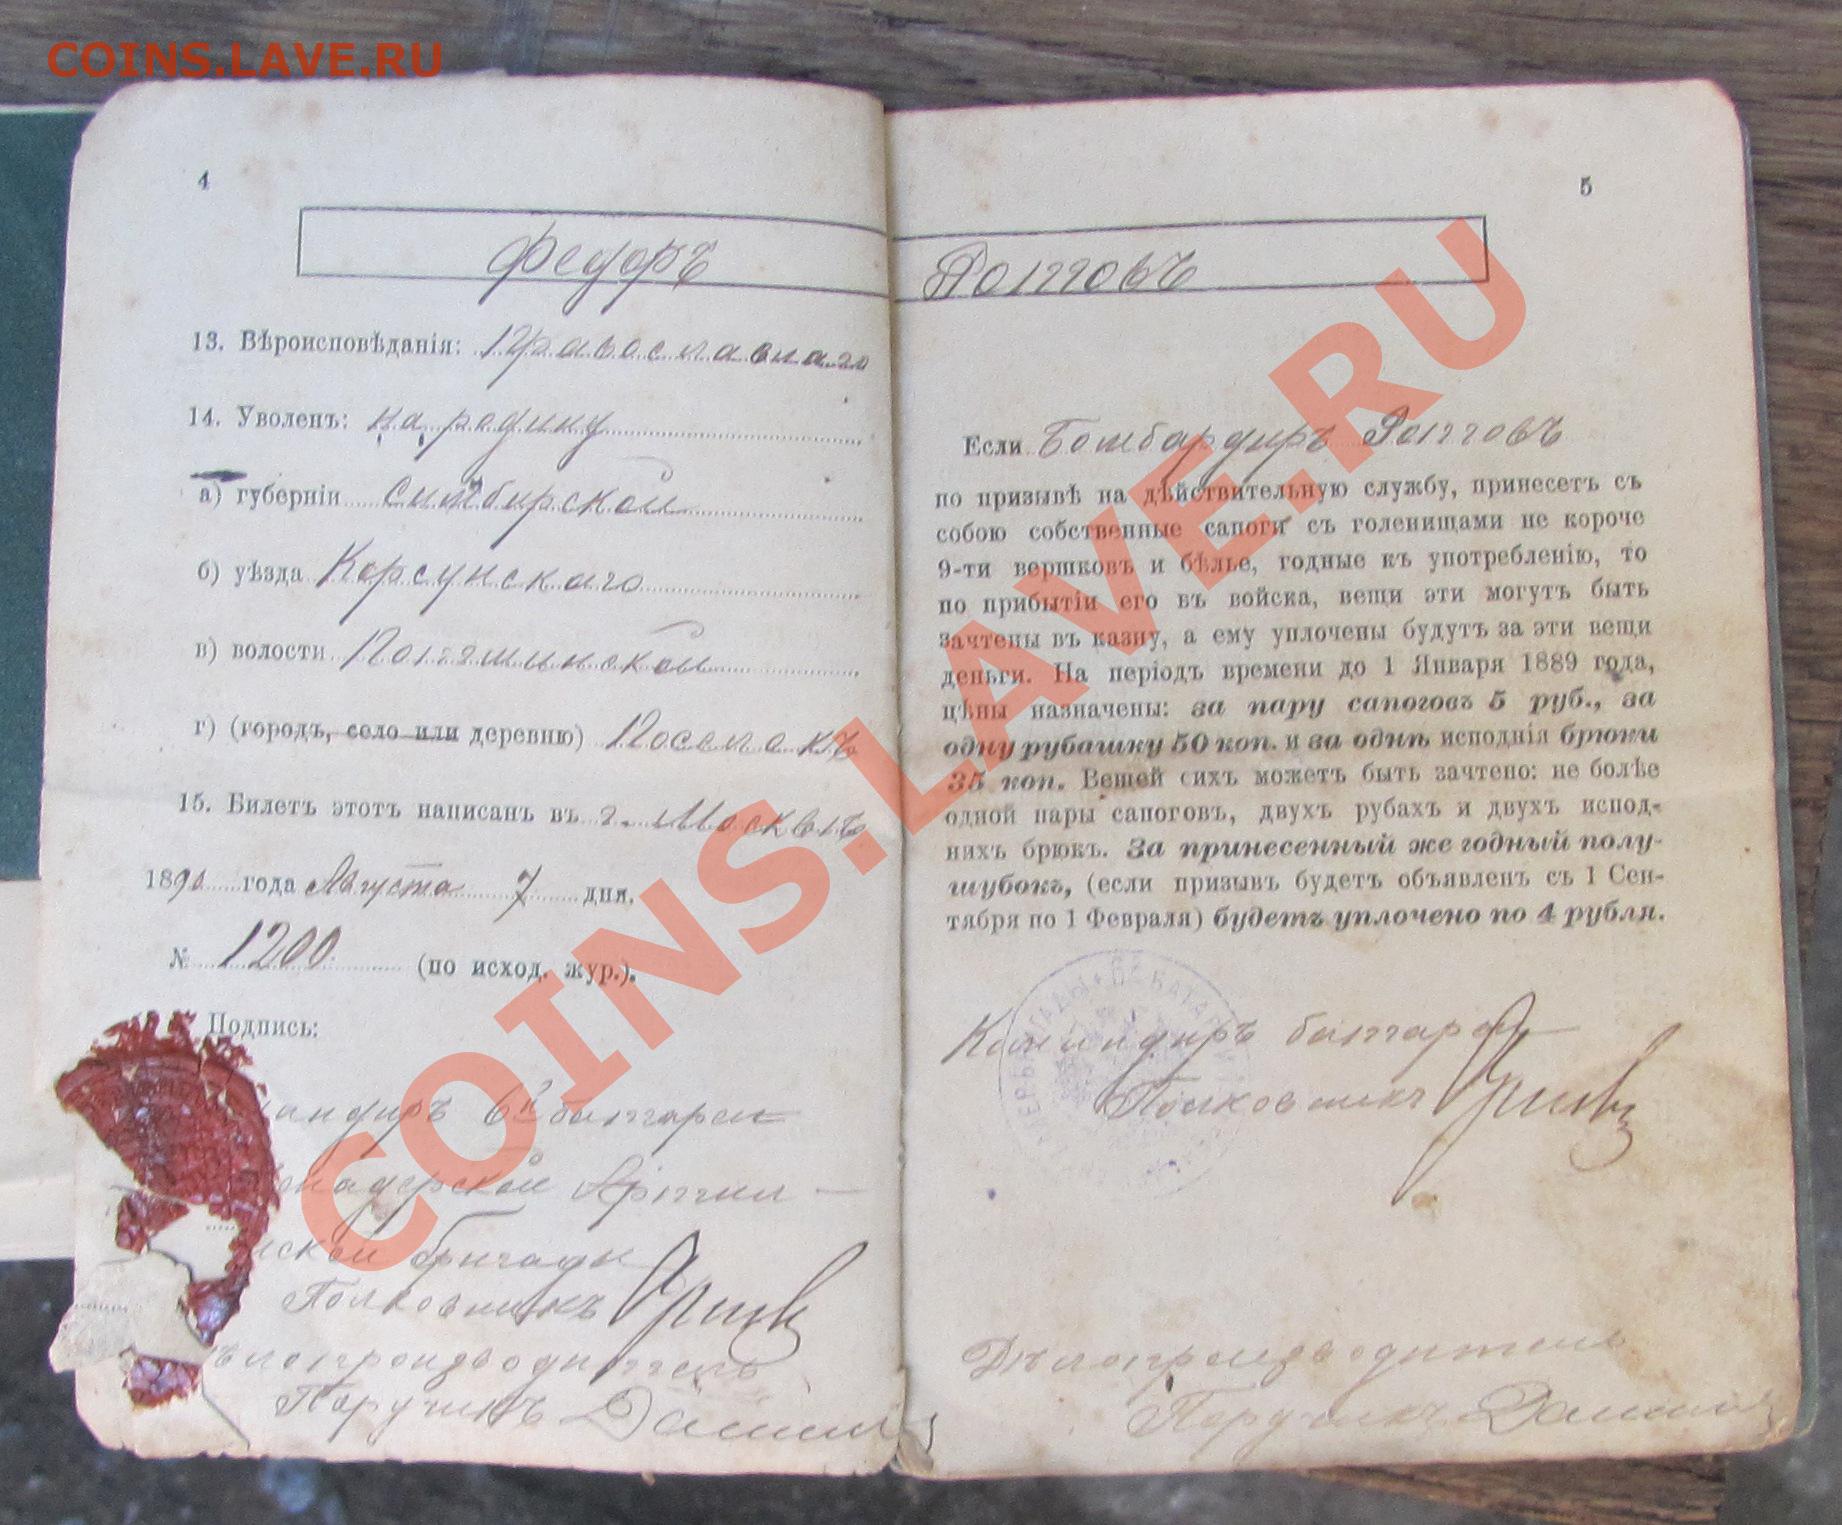 COINS.LAVE.RU
4
Федоръ
13. Вѣроисповѣданія: Православнаго
14. Уволенъ: на родину
а) губерніи Симбирской
б) уѣзда Корсунскаго
в) волости
г) (городъ, село или деревню) Поселокъ
15. Билетъ этотъ написанъ въ г. Москвѣ
1890 года Августа 7 дня.
№ 1200 (по исход. жур.).
Подпись:
андиръ 6й батареи
енадерской Артил-
йской бригады
Полковникъ
ѣлопроизводитель
Поручикъ
5
Если Бомбардиръ
по призывѣ на дѣйствительную службу, принесетъ съ
собою собственные сапоги съ голенищами не короче
9-ти вершковъ и бѣлье, годные къ употребленію, то
по прибытіи его въ войска, вещи эти могутъ быть
зачтены въ казну, а ему уплочены будутъ за эти вещи
деньги. На періодъ времени до 1 Января 1889 года,
цѣны назначены: за пару сапоговъ 5 руб., за
одну рубашку 50 коп. и за однѣ исподнія брюки
35 коп. Вещей сихъ можетъ быть зачтено: не болѣе
одной пары сапоговъ, двухъ рубахъ и двухъ испод-
нихъ брюкъ. За принесенный же годный полу-
шубокъ, (если призывъ будетъ объявленъ съ 1 Сен-
тября по 1 Февраля) будетъ уплочено по 4 рубля.
Командиръ батареи
Полковникъ
Дѣлопроизводитель
Поручикъ
COINS.LAVE.RU